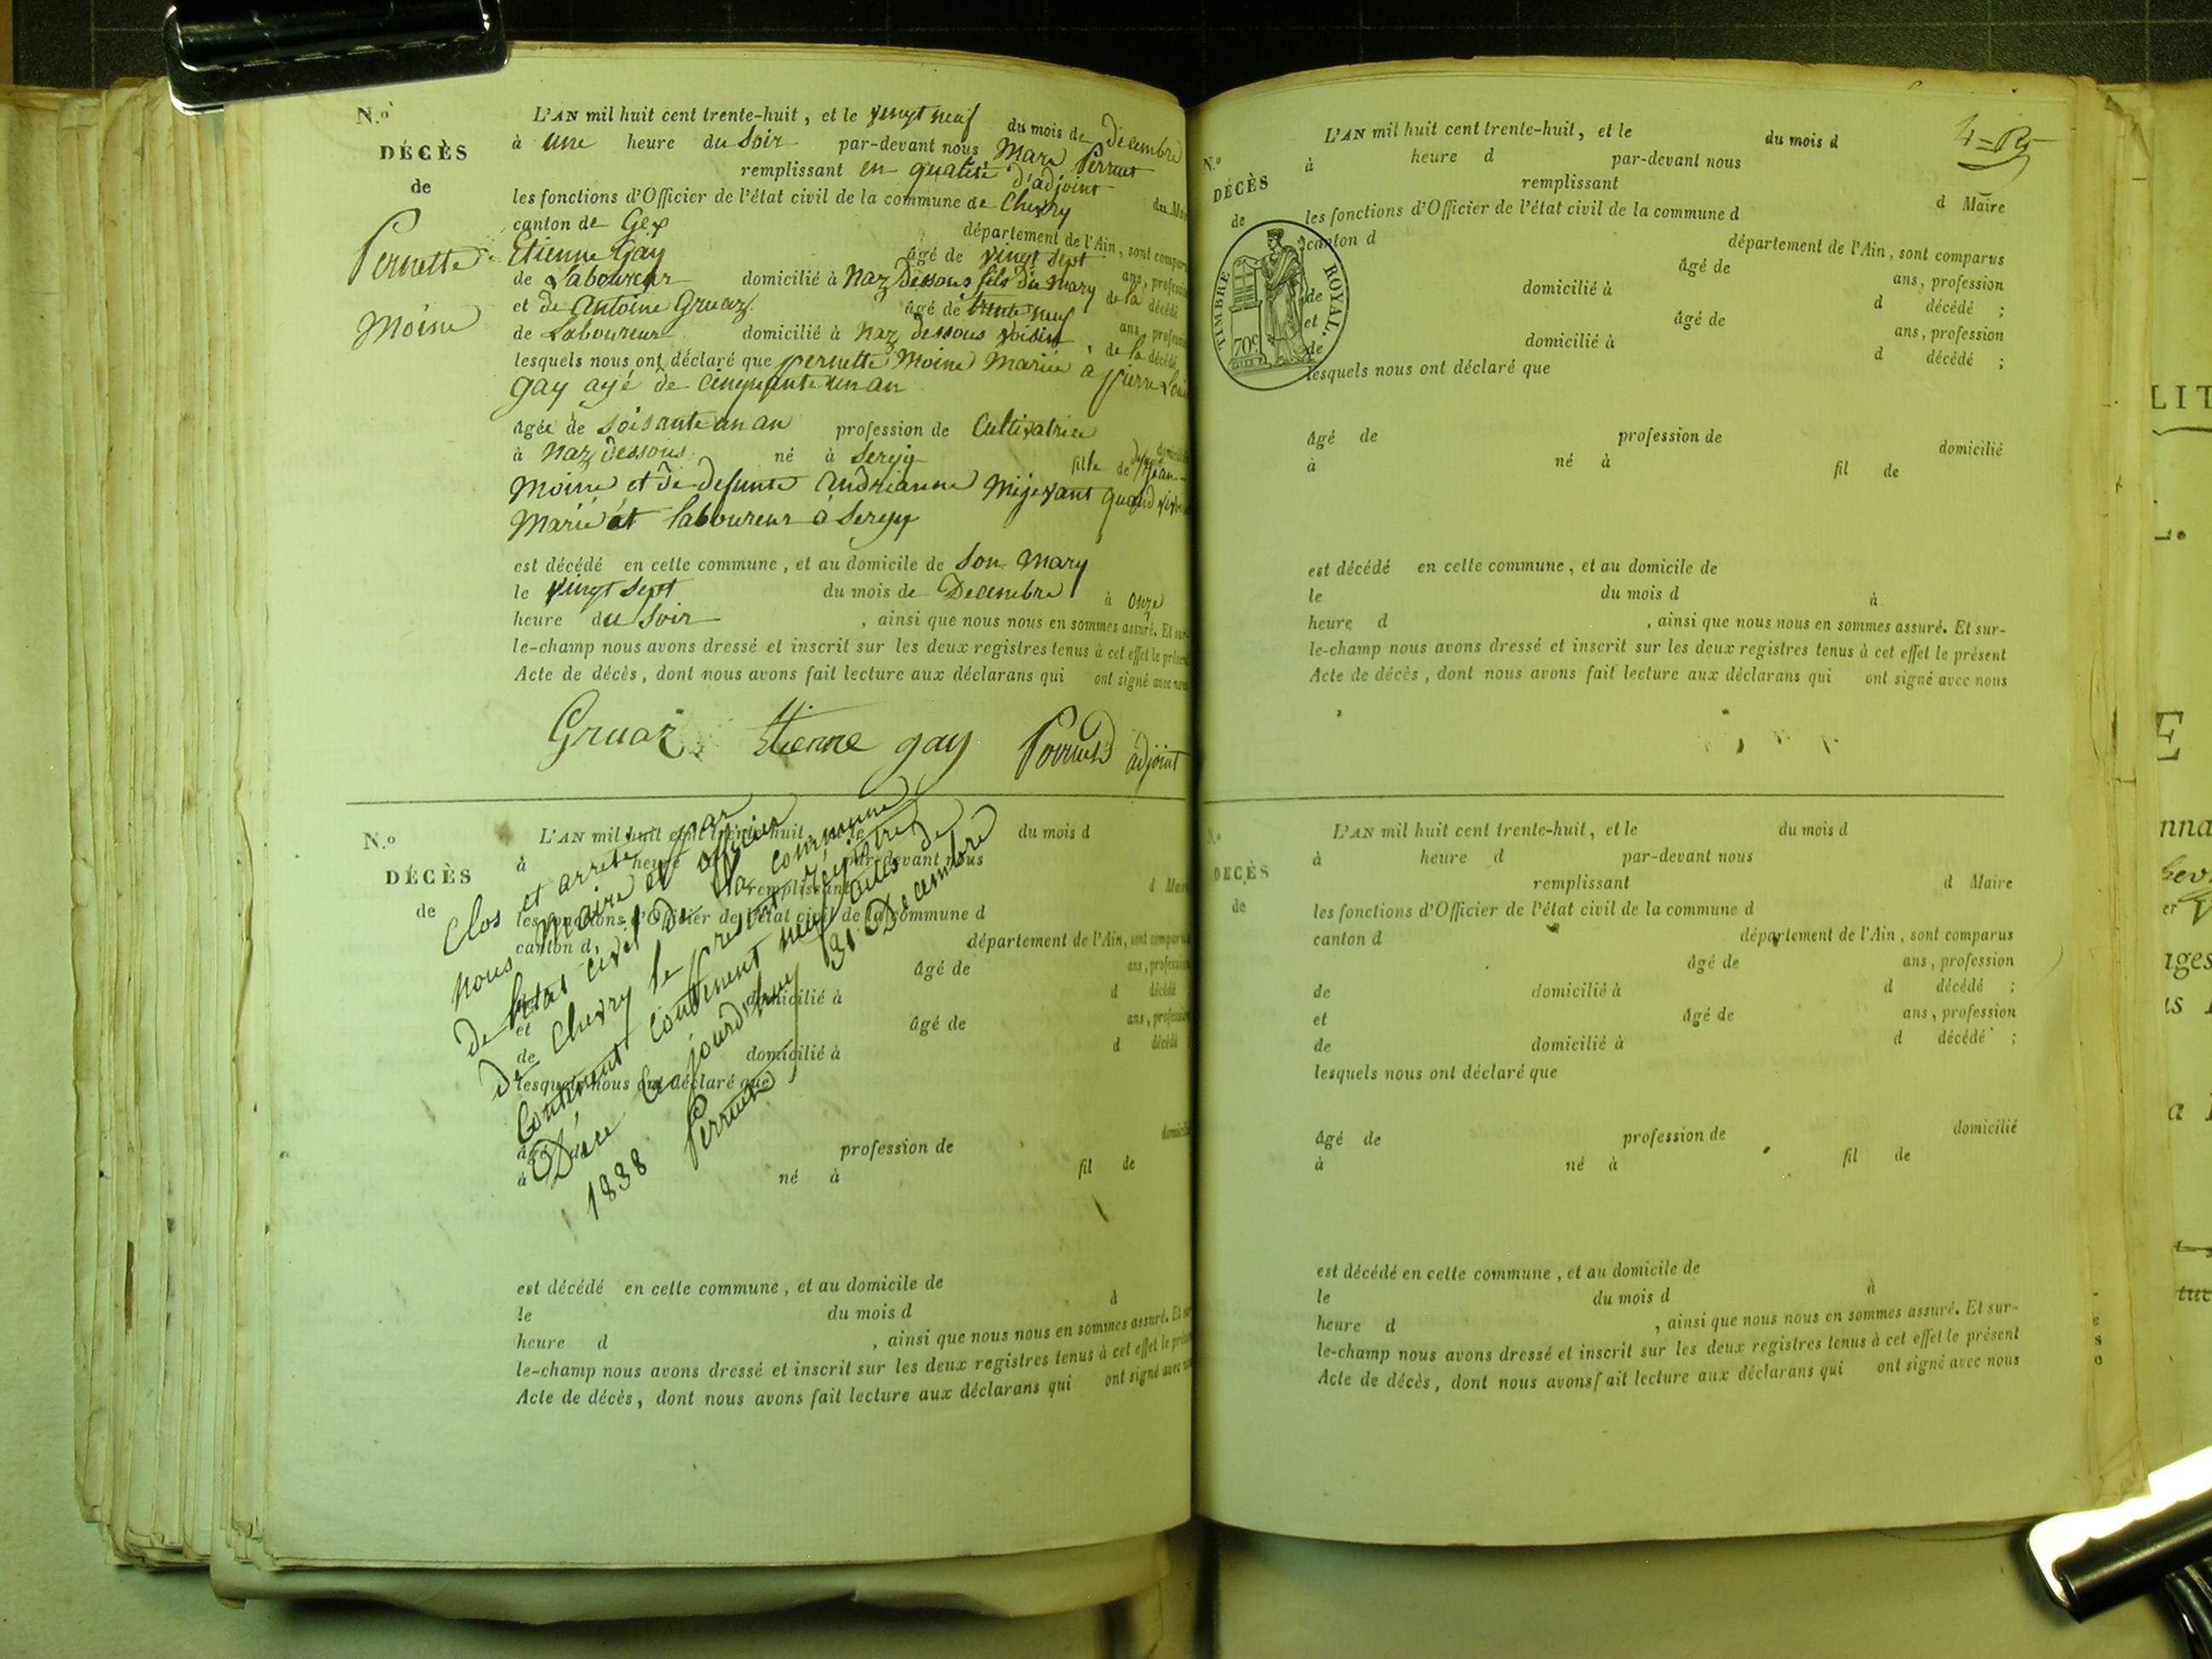 N.º
DÉCÈS
de
Pernette
Moine
L'AN mil huit cent trente-huit, et le vingt neuf du mois de Decembre
à une heure du Soir par-devant nous Marc Perrut
remplissant en qualité d'adjoint du Mai
les fonctions d'Officier de l'état civil de la commune de Chevry
canton de Gex département de l'Ain, sont compar
Etienne Gay âgé de vingt sept ans, profess
de Laboureur domicilié à Naz Dessous fils du mary de la décédé
et de Antoine Gruaz âgé de trente neuf ans, profess
de Laboureur domicilié à naz dessous voisin de la décédé
lesquels nous ont déclaré que pernette Moine Mariée a pierre Loui
gay agé de cinquante un an
âgée de soisante un an profession de Cultivatrice domicilié
à Naz dessous né à Sergy fille de Jean
Moine et de defunte Andrianne Mejevant quand
Marié et laboureur à Sergy
est décédé en cette commune, et au domicile de son mary
le vingt sept du mois de Decembre à onze
heure du Soir , ainsi que nous nous en sommes assuré. Et sur-
le-champ nous avons dressé et inscrit sur les deux registres tenus à cet effet le présent
Acte de décès, dont nous avons fait lecture aux déclarans qui ont signé avec nous
Gruaz Etienne gay Perrut adjoint
N.º
DÉCÈS
de
L'AN mil huit cent trente-huit, et le du mois d
à heure par-devant nous
remplissant d Mai
les fonctions d'Officier de l'état civil de la commune d
canton d département de l'Ain, sont comparus
âgé de ans, profession
domicilié à d décédé
et âgé de ans, profession
de domicilié à d décédé
lesquels nous ont déclaré que
âgé de profession de domicilié
à né à fil de
est décédé en cette commune, et au domicile de
le du mois d à
heure d , ainsi que nous nous en sommes assuré. Et sur
le-champ nous avons dressé et inscrit sur les deux registres tenus à cet effet le présen
Acte de décès, dont nous avons fait lecture aux déclarans qui ont signé avec nous
Clos et arrete par
nous Maire et officier
de letat civil de la commune
De Chevry le present registre
Contenant contenent neuf actes de
Déce Ce jourd'huy 31 Decembre
1838 Perrut
4=
N.º
DÉCÈS
de
TIMBRE ROYAL.
70c
L'AN mil huit cent trente-huit, et le du mois d
à heure d par-devant nous
remplissant d Maire
les fonctions d'Officier de l'état civil de la commune d
canton d département de l'Ain, sont comparus
âgé de ans, profession
de domicilié à d décédé ;
et âgé de ans, profession
de domicilié à d décédé ;
lesquels nous ont déclaré que
âgé de profession de domicilié
à né à fil de
est décédé en cette commune, et au domicile de
le du mois d à
heure d , ainsi que nous nous en sommes assuré. Et sur-
le-champ nous avons dressé et inscrit sur les deux registres tenus à cet effet le présent
Acte de décès, dont nous avons fait lecture aux déclarans qui ont signé avec nous
N.º
DÉCÈS
de
L'AN mil huit cent trente-huit, et le du mois d
à heure d par-devant nous
remplissant d Maire
les fonctions d'Officier de l'état civil de la commune d
canton d département de l'Ain, sont comparus
âgé de ans, profession
de domicilié à d décédé ;
et âgé de ans, profession
de domicilié à d décédé ;
lesquels nous ont déclaré que
âgé de profession de domicilié
à né à fil de
est décédé en cette commune, et au domicile de
le du mois d à
heure d , ainsi que nous nous en sommes assuré. Et sur-
le-champ nous avons dressé et inscrit sur les deux registres tenus à cet effet le présent
Acte de décès, dont nous avons fait lecture aux déclarans qui ont signé avec nous